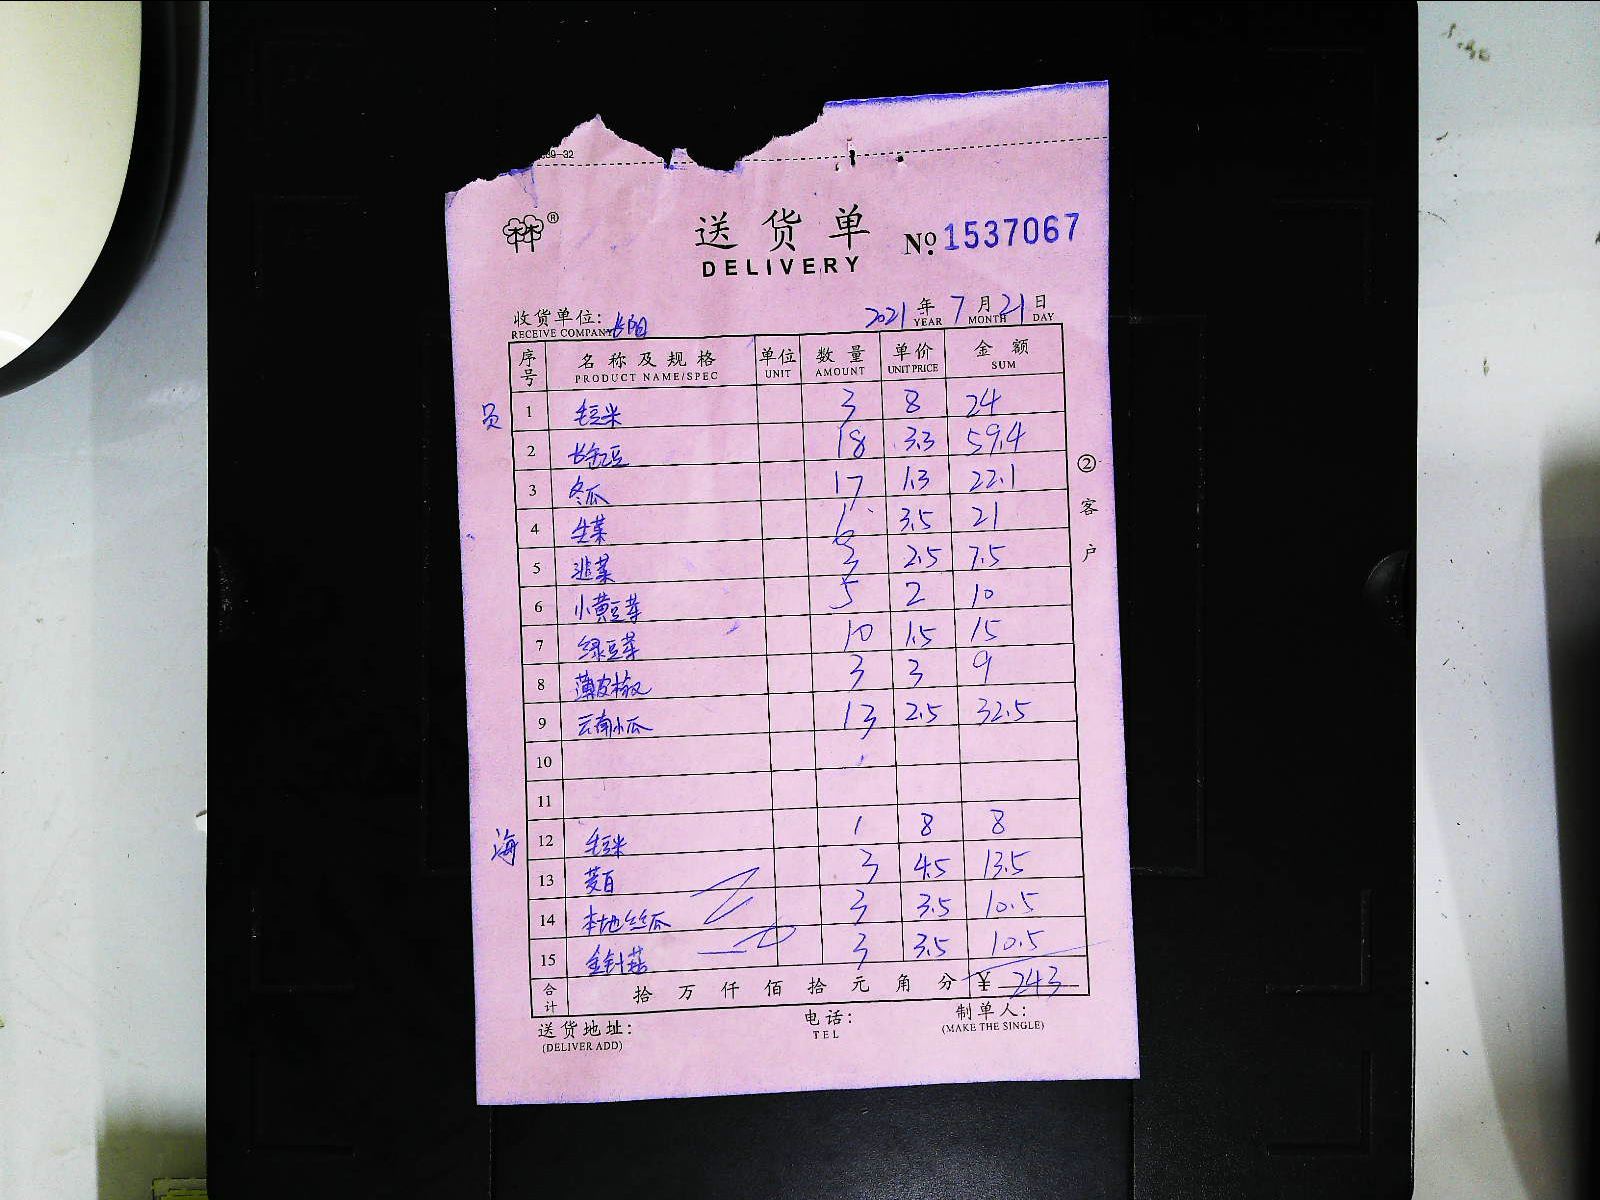 39-32
送货单 №1537067
DELIVERY
收货单位: 长阳 2021年7月21日
RECEIVE COMPANY YEAR MONTH DAY
序号 名称及规格 单位 数量 单价 金额
PRODUCT NAME/SPEC UNIT AMOUNT UNIT PRICE SUM
员 1 毛豆米 3 8 24
2 长豇豆 18 3.3 59.4
3 冬瓜 17 1.3 22.1
4 生菜 6 3.5 21
5 韭菜 3 2.5 7.5
6 小黄豆芽 5 2 10
7 绿豆芽 10 1.5 15
8 薄皮椒 3 3 9
9 云南小瓜 13 2.5 32.5
10
11
海 12 毛豆米 1 8 8
13 茭白 3 4.5 13.5
14 本地丝瓜 3 3.5 10.5
15 金针菇 3 3.5 10.5
合计 拾万仟佰拾元角分 ¥243
送货地址: 电话: 制单人:
(DELIVER ADD) TEL (MAKE THE SINGLE)
②客户